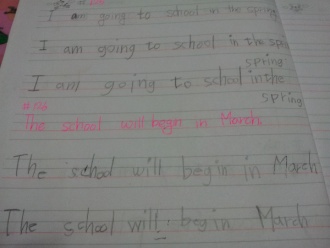 I am going to school in the spring
I am going to school in the sp
spring
I am going to school in the
spring
The school will begin in March
The school will begin in March
The school will begin March